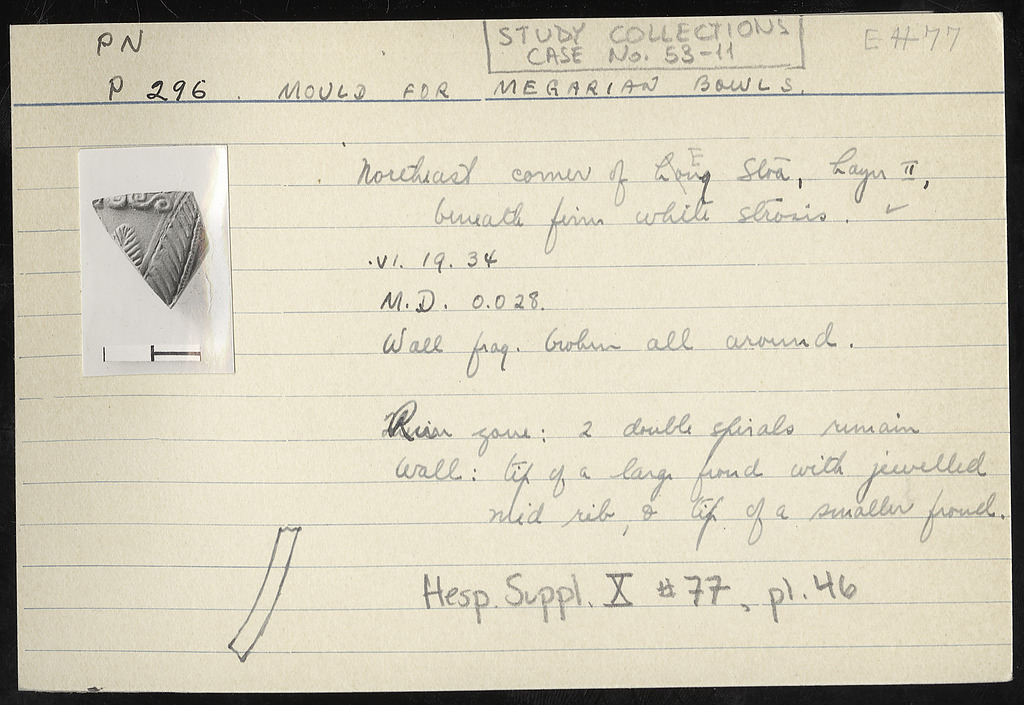 PN
STUDY COLLECTIONS
CASE No. 53-11
E#77
P 296. MOULD FOR MEGARIAN BOWLS.
Northeast corner of Long E Stoa, Layer II,
beneath firm white strosis. ✓
VI. 19. 34
M.D. 0.028.
Wall frag. broken all around.
Rim zone: 2 double spirals remain
Wall: tip of a large frond with jewelled
mid rib, & tip of a smaller frond.
Hesp. Suppl. X #77, pl. 46